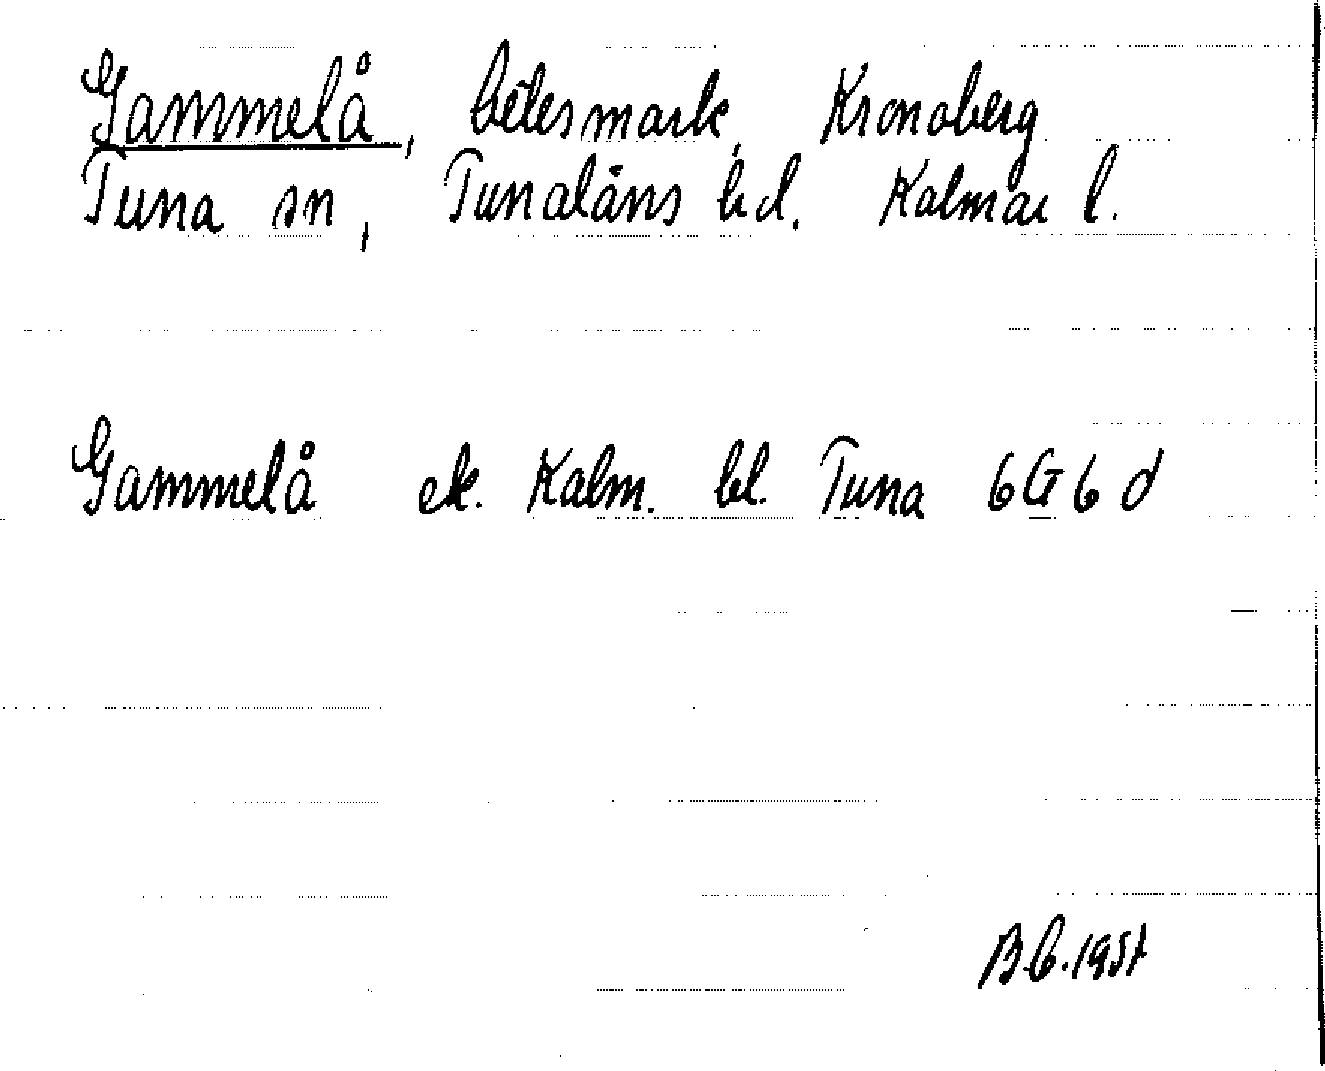 Gammelå, betesmark, Kronoberg
Tuna sn, Tunaläns hd. Kalmar l.
Gammelå ek. Kalm. bl. Tuna 6G6d
B.C. 1957